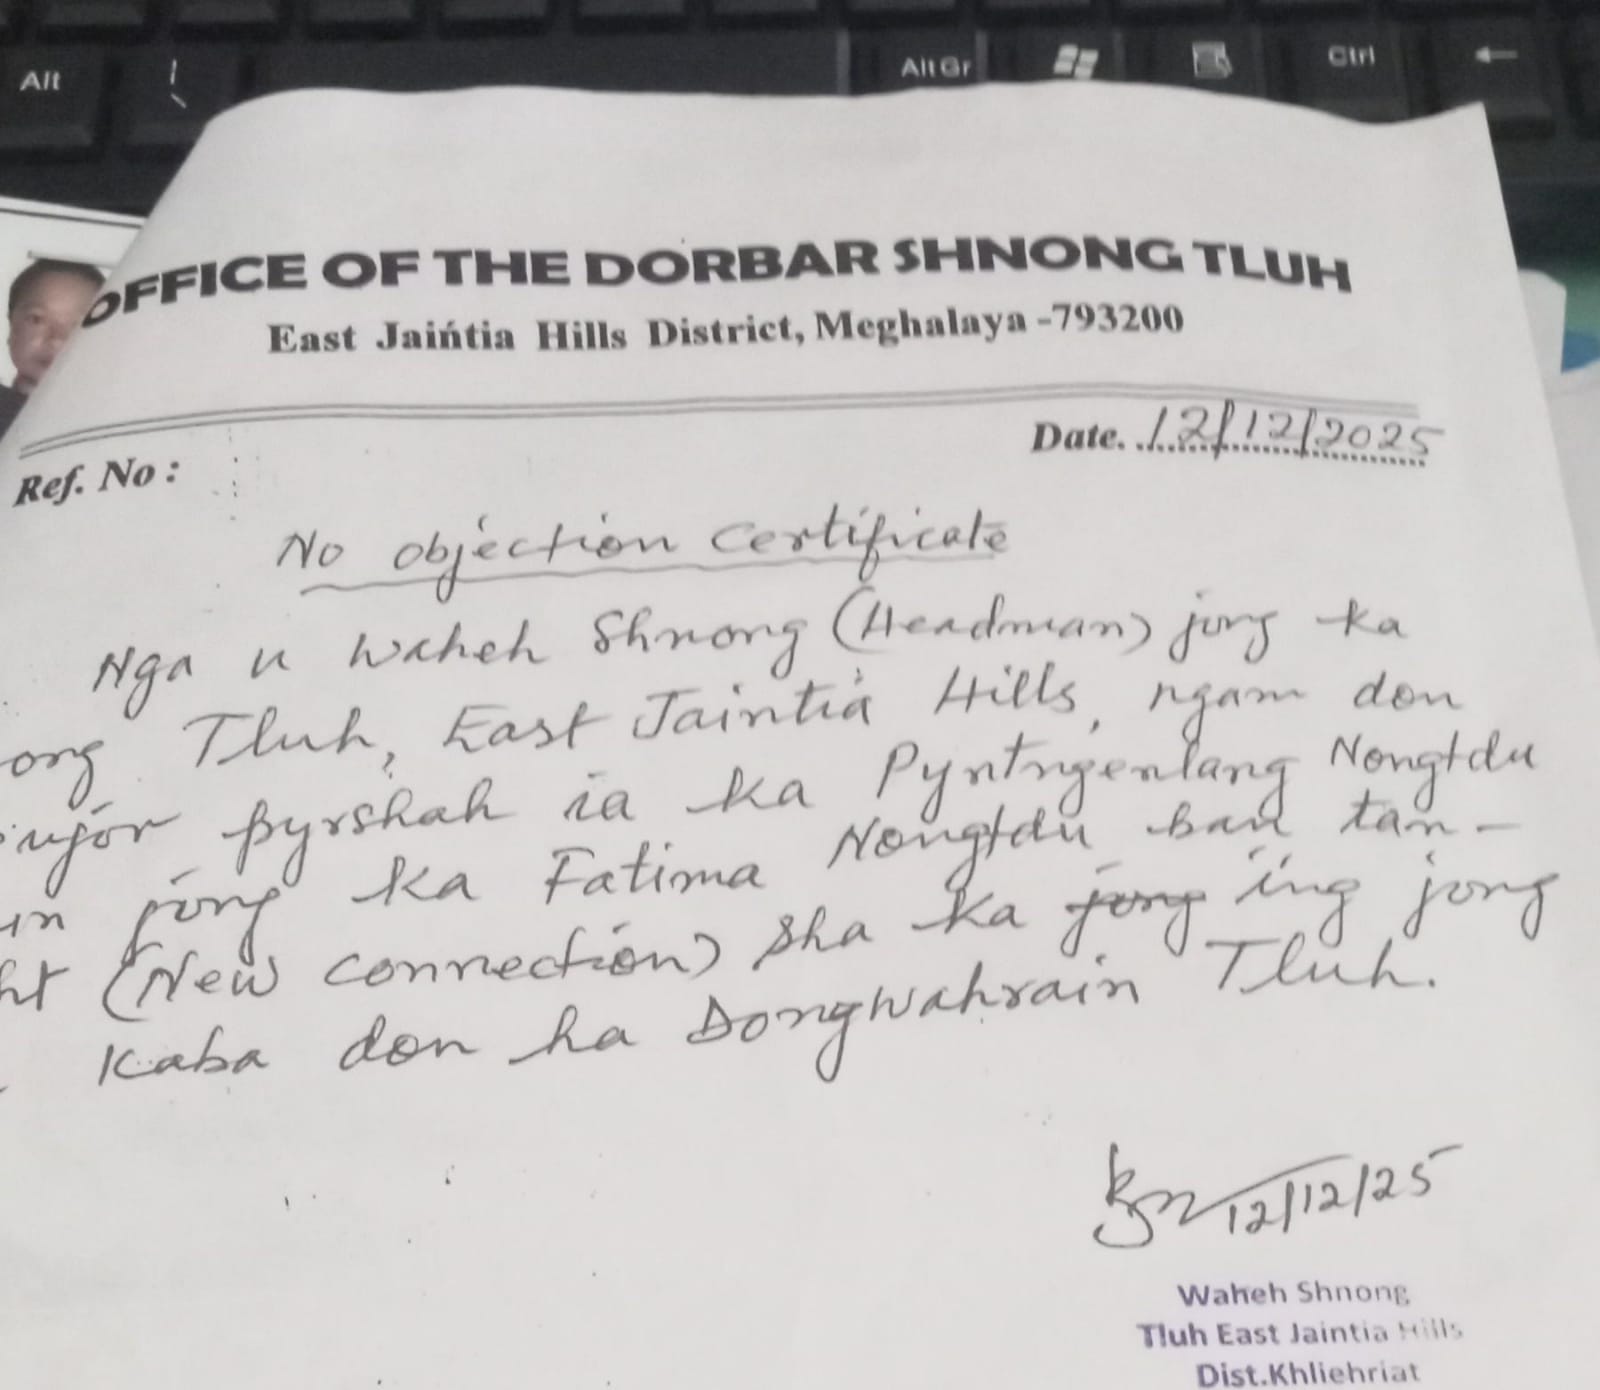 Alt
Alt Gr
Ctrl
OFFICE OF THE DORBAR SHNONG TLUH
East Jaińtia Hills District, Meghalaya -793200
Date. 12/12/2025
Ref. No :
No objection certificate
Nga u Waheh Shnong (Headman) jong ka
ong Tluh, East Jaintia Hills, ngam don
pyrshah ia ka Pyntngenlang Nongtdu
jong ka Fatima Nongtdu ban tan-
ht (New connection) sha ka jong ing jong
Kaba don ha Dongwahrain Tluh.
12/12/25
Waheh Shnong
Tluh East Jaintia Hills
Dist.Khliehriat